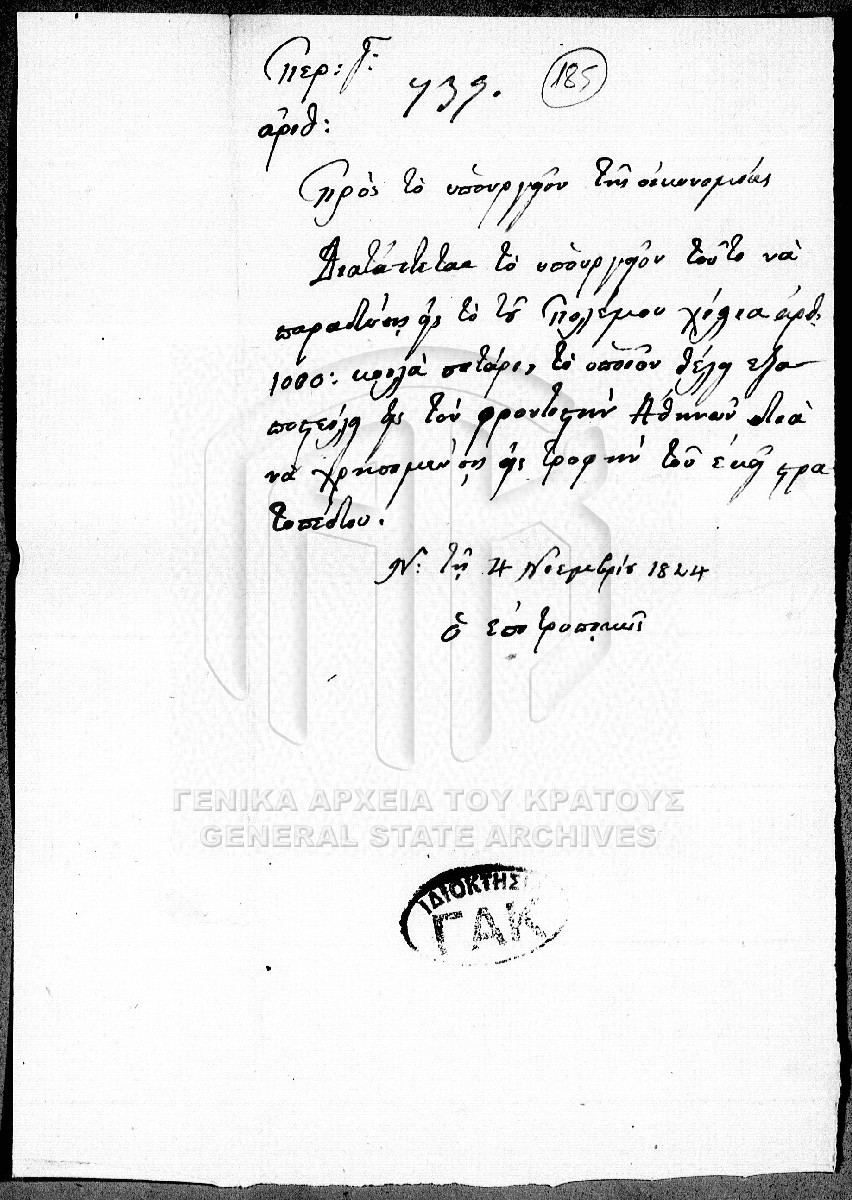 Περ: Γ:
739. 185
ἀριθ:
Πρὸς τὸ ὑπουργεῖον τῆς οἰκονομίας
Διατάττεται τὸ ὑπουργεῖον τοῦτο νὰ
παραδώσῃ εἰς τὸ τοῦ Πολέμου χίλια ἀρθ:
1000: κοιλὰ σιτάρι, τὸ ὁποῖον θέλει εξα
ποστείλῃ εἰς τὸν φροντιστὴν Ἀθηνῶν διὰ
νὰ χρησιμεύσῃ εἰς τροφὴν τοῦ ἐκεῖ στρα
τοπέδου.
Ν: τῇ 4 Νοεμβρίου 1824
ΓΕΝΙΚΑ ΑΡΧΕΙΑ ΤΟΥ ΚΡΑΤΟΥΣ
GENERAL STATE ARCHIVES
ΙΔΙΟΚΤΗΣΙ
ΓΑΚ